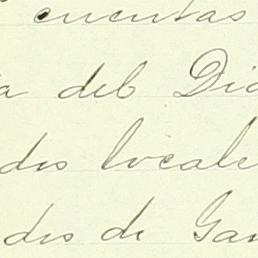 cuentas
a del Dia
dos locale
dos de Gan